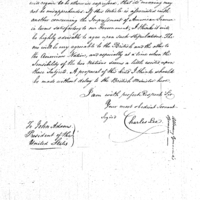 will require to be otherwise expressed, that its meaning may
not be misapprehended. If this able to an agreement
another concerning the Impressment of American Seamen
in terms satisfactory to our Government, I think it will
be highly advisable to agree upon such stipulations. The
one will be very agreeable to the British and the other to
the American Nation, and especially at a time when the
Sensibility of the two Nations seems a little roused upon
these Subjects. A proposal of this kind I think should
be made without delay to the British Minister here.
I am with perfect Respect Sir
Your most obedient servant
Signed
Charles Lee.
To John Adams
President of the
United States